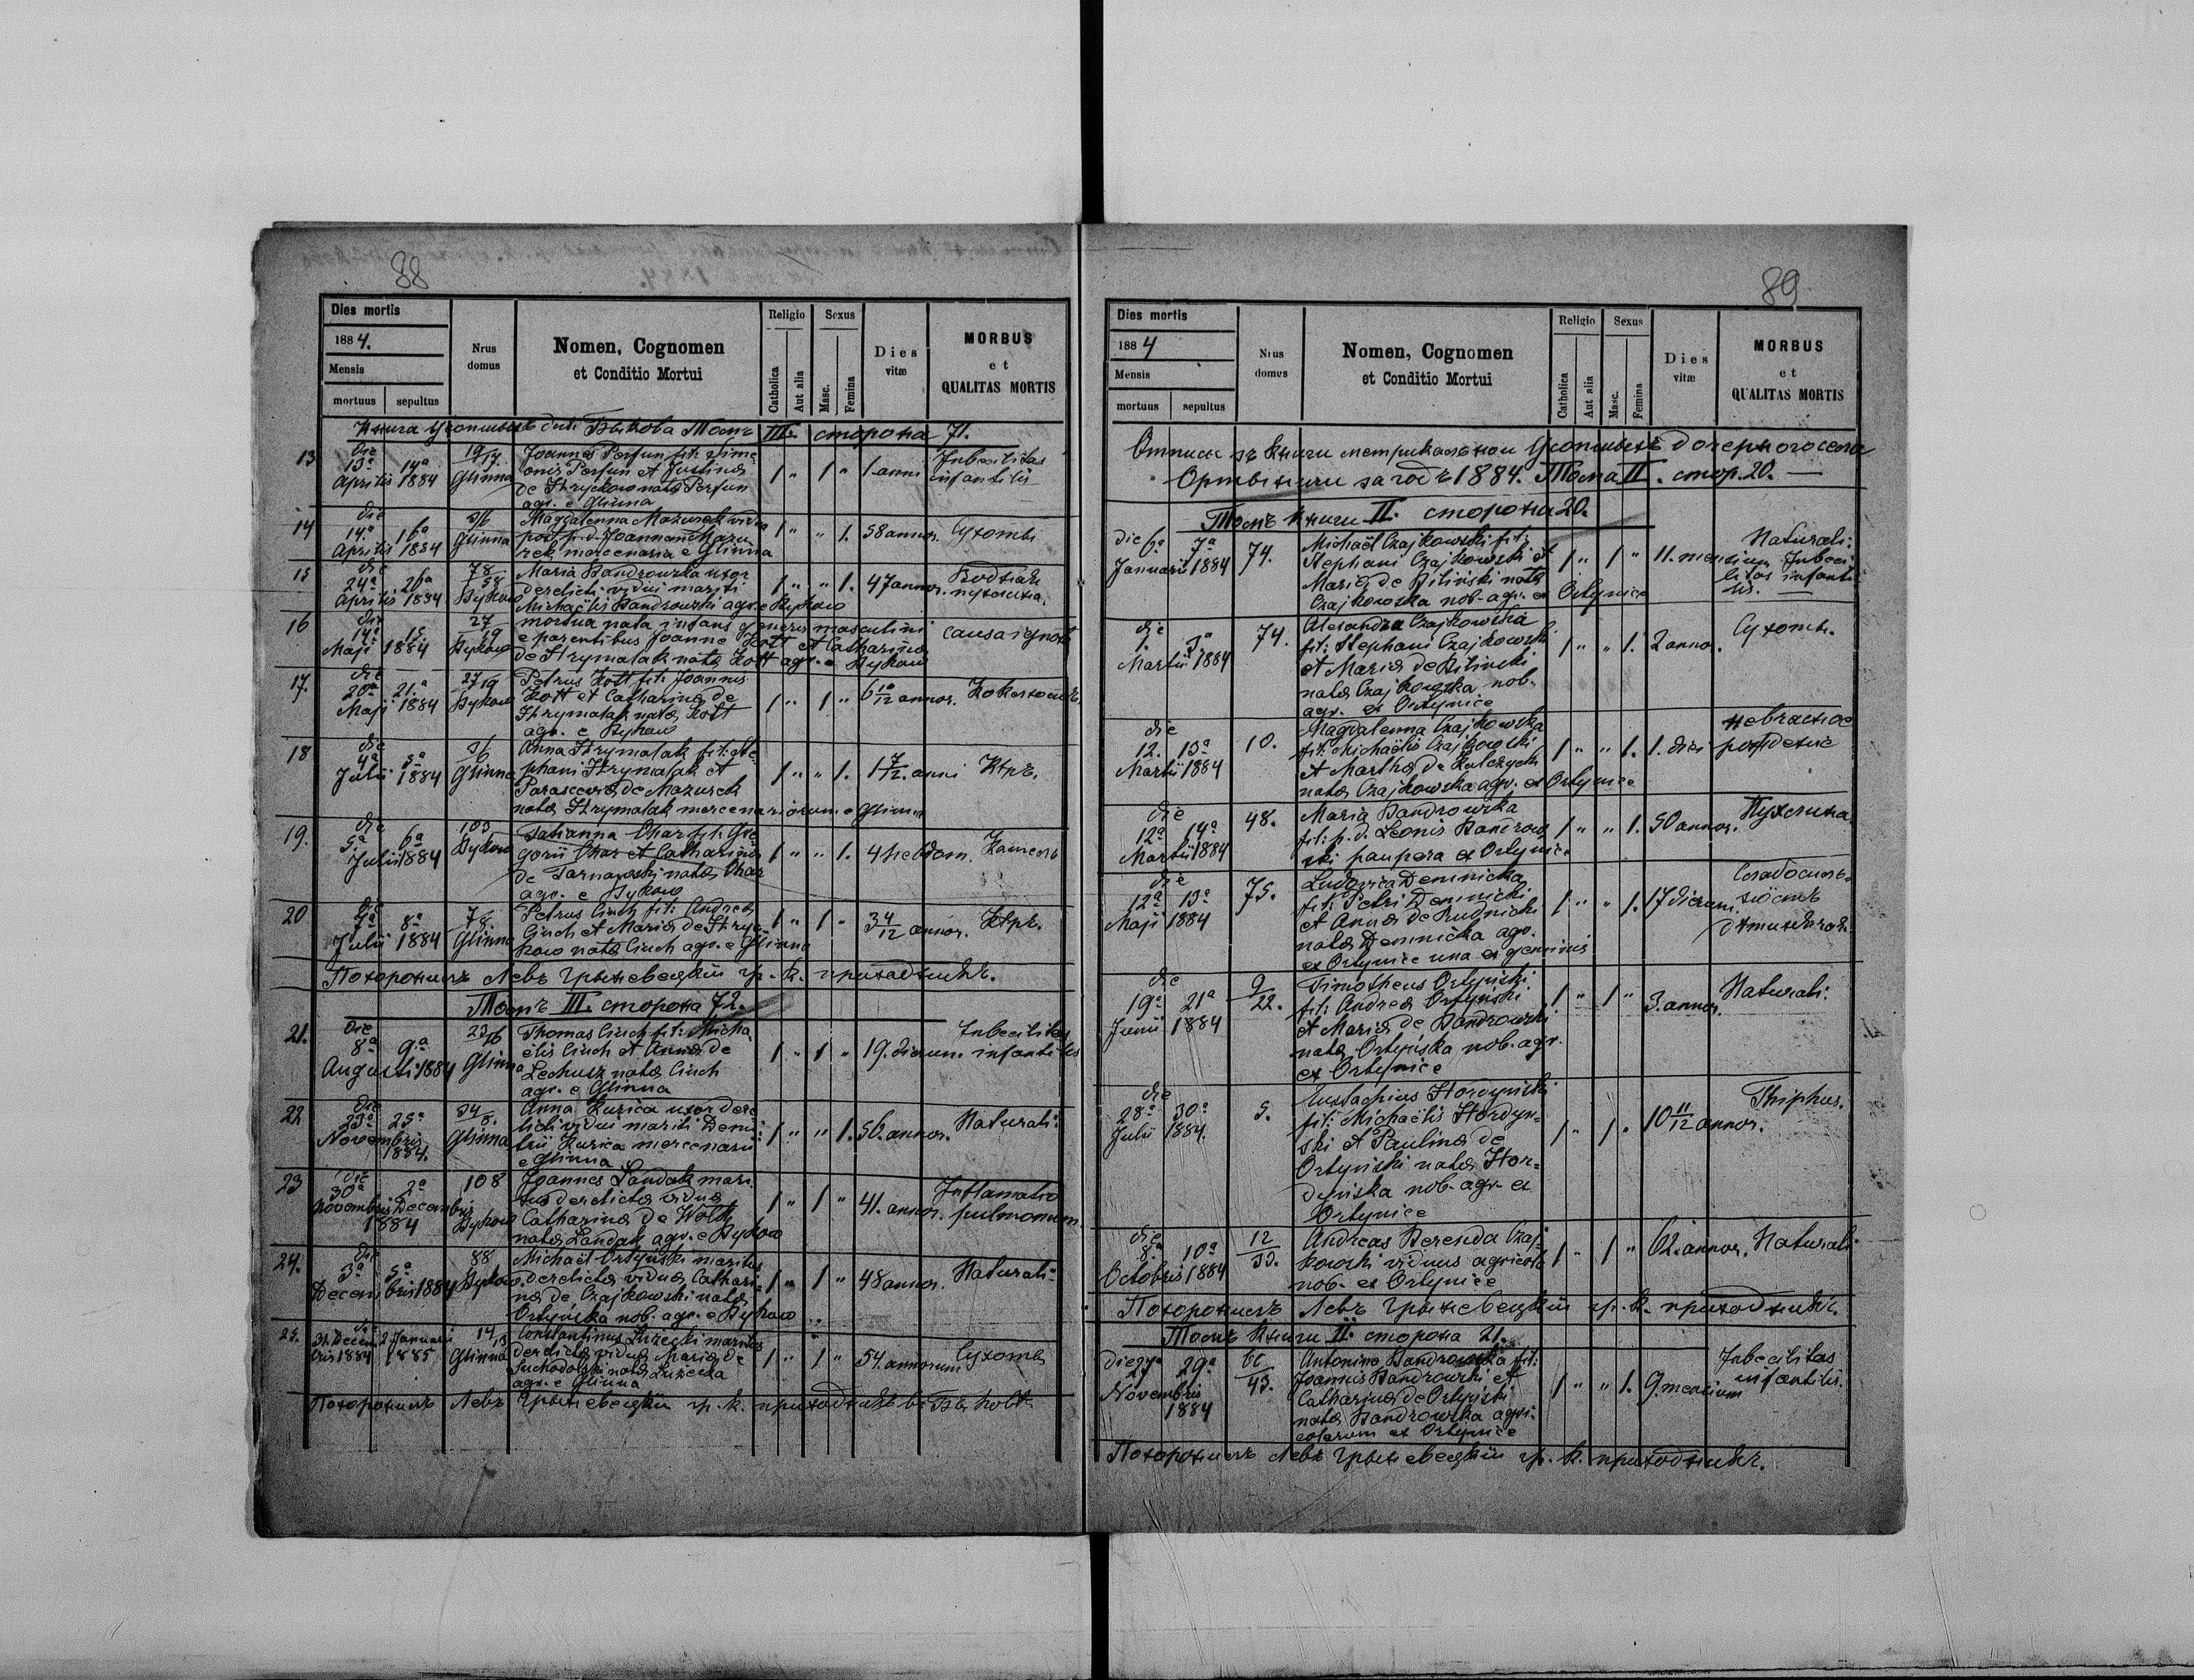 88
Dies mortis
1884.
Mensis
mortuus sepultus
Nrus domus
Nomen, Cognomen
et Conditio Mortui
Religio
Catholica
Aut alia
Sexus
Masc.
Femina
Dies vitæ
MORBUS
et
QUALITAS MORTIS
Томъ III. сторона 71.
13 die 13ª 14ª Aprilis 1884 19/17. Glinna
Joannes Persun fil: Sime-
onis Persun et Justinæ
de Stryckow natæ Persun
agr. e Glinna
1 " 1 " 1 anni Inbecilitas infantilis
14 die 14ª 16ª Aprilis 1884 Glinna
Magdalenna Mazurek vidua
post p. d. Joannem Mazu
rek mercenaria e Glinna
1 " " 1. 58 annor. Сухоты
15 die 24ª 26ª Aprilis 1884 78/58 Bykow
Maria Bandrowska uxor
derelicti vidui mariti
Michaëlis Bandrowski agr. e Bykow
1 " " 1. 47 annor. Водная пухлина.
16 die 14ª 15 Maji 1884 27/19 Bykow
mortua nata infans generis masculini
e parentibus Joanne Kott et Catharina
de Strymatak natæ Kott agr. e Bykow
causa ignota
17. die 20ª 21.ª Maji 1884 27/19 Bykow
Petrus Kott fil: Joannis
Kott et Catharinæ de
Strymatak natæ Kott
agr. e Bykow
1 " 1 " 6 10/12 annor. Коклюшъ
18 die 4ª 5ª Julii 1884 Glinna
Anna Strymatak fil: Ste-
phani Strymatak et
Parasceviæ de Mazurek
natæ Strymatak mercenariorum e Glinna
1 " " 1. 1 7/12. anni Кѣръ.
19. die 5.ª 6ª Julii 1884 103 Bykow
Tatianna Ohar fil: Gre
gorii Ohar et Catharinæ
de Tarnawski natæ Ohar
agr. e Bykow
1 " " 1. 4 hebdom. Кашель
20 die 7ª 8ª Julii 1884 7/8. Glinna
Petrus Cinch fil: Andreæ
Cinch et Mariæ de Stryc-
kow natæ Cinch agr. e Glinna
1 " 1 " 3 4/12 annor. Кѣръ.
Похоронилъ Левъ Грыневецкій гр. к. приходникъ.
Томъ III. сторона 72.
21. die 8ª 9.ª Augusti 1884 23/16 Glinna
Thomas Cinch fil: Micha
ëlis Cinch et Annæ de
Lechusz natæ Cinch
agr. e Glinna
1 " 1 " 19. dierum Inbecilitas infantilis
22 die 23ª 25ª Novembris 1884. 34/8. Glinna
Anna Kurica uxor dere
licti vidui mariti Deme
trii Kurica mercenarii
e Glinna
1 " " 1. 56. annor. Naturali:
23 die 30ª 2ª Novembris Decembris 1884 108 Bykow
Joannes Landak mari
tus derelictæ viduæ
Catharinæ de Woltk
natæ Landak agr. e Bykow
1 " 1 " 41. annor. Inflamatio pulmonum.
24. die 3ª 5ª Decembris 1884 88 Bykow
Michaël Ortynski maritus
derelictæ viduæ Cathari-
næ de Czajkowski natæ
Ortyńska nob. agr. e Bykow
1 " 1 " 48 annor. Naturali:
25. die 31. Decembris 1884 2 Januarii 1885 Glinna
Constantinus Luzecki maritus
derelictæ viduæ Mariæ de
Suchodolski natæ Luzecka
agr. e Glinna
1 " 1 " 54. annorum Сухоты
Похоронилъ Левъ Грыневецкій гр. к. приходникъ въ Быковѣ.
89
Dies mortis
1884
Mensis
mortuus sepultus
Nrus domus
Nomen, Cognomen
et Conditio Mortui
Religio
Catholica
Aut alia
Sexus
Masc.
Femina
Dies vitæ
MORBUS
et
QUALITAS MORTIS
Отписъ зъ книги метрикальнои Усопшихъ дочерного села
Ортыничи за годъ 1884. Тома II. стор. 20. —
Томъ книги II. сторона 20.
die 6ª 7ª Januarii 1884 74.
Michaël Czajkowski fil:
Stephani Czajkowski et
Mariæ de Biliński natæ
Czajkowska nob. agr. ex Ortynice
1 " 1 " 11. mensium Naturali: Inbecilitas infantilis. —
die 1. 3ª Martii 1884 74.
Alexandra Czajkowska
fil: Stephani Czajkowski
et Mariæ de Bilinski
natæ Czajkowska nob.
agr. ex Ortynice
1 " " 1. 2 annor. Сухоты.
die 12. 13ª Martii 1884 10.
Magdalenna Czajkowska
fil: Michaëlis Czajkowski
et Marthæ de Kulczycki
natæ Czajkowska agr. ex Ortynice
1 " " 1. 1. diei
die 12ª 14ª Martii 1884 48.
Maria Bandrowska
fil: p. d. Leonis Bandrow
ski paupera ex Ortynice
1 " " 1. 50 annor. Пухлина.
die 12ª 13ª Maji 1884 75.
Ludovica Demnicka
fil: Petri Demnicki
et Annæ de Rudnicki
natæ Demnicka agr.
ex Ortynice una ex geminis
1 " " 1. 17 dierum
die 19ª 21ª Junii 1884 9/22.
Timotheus Ortyński
fil: Andreæ Ortyński
et Mariæ de Bandrowski
natæ Ortyńska nob. agr.
ex Ortynice
1 " 1 " 3. annor. Naturali:
die 28ª 30ª Julii 1884. 5.
Eustachius Hordyński
fil: Michaëlis Hordyn-
ski et Paulinæ de
Ortyński natæ Hor-
dyńska nob. agr. ex
Ortynice
1 " 1 " 10 11/12 annor. Thiphus.
die 8.ª 10ª Octobris 1884 12/33.
Andreas Berenda Czaj-
kowski viduus agricola
nob. ex Ortynice
1 " 1 " 62. annor. Naturali:
Похоронилъ Левъ Грыневецкій гр. к. приходникъ.
Томъ книги II. сторона 21.
die 27ª 29ª Novembris 1884 43.
Antonina Bandrowska fil:
Joannis Bandrowski et
Catharinæ de Ortyński
natæ Bandrowska agri-
colarum ex Ortynice
1 " " 1. 9. mensium Inbecilitas infantilis.
Похоронилъ Левъ Грыневецкій гр. к. приходникъ.